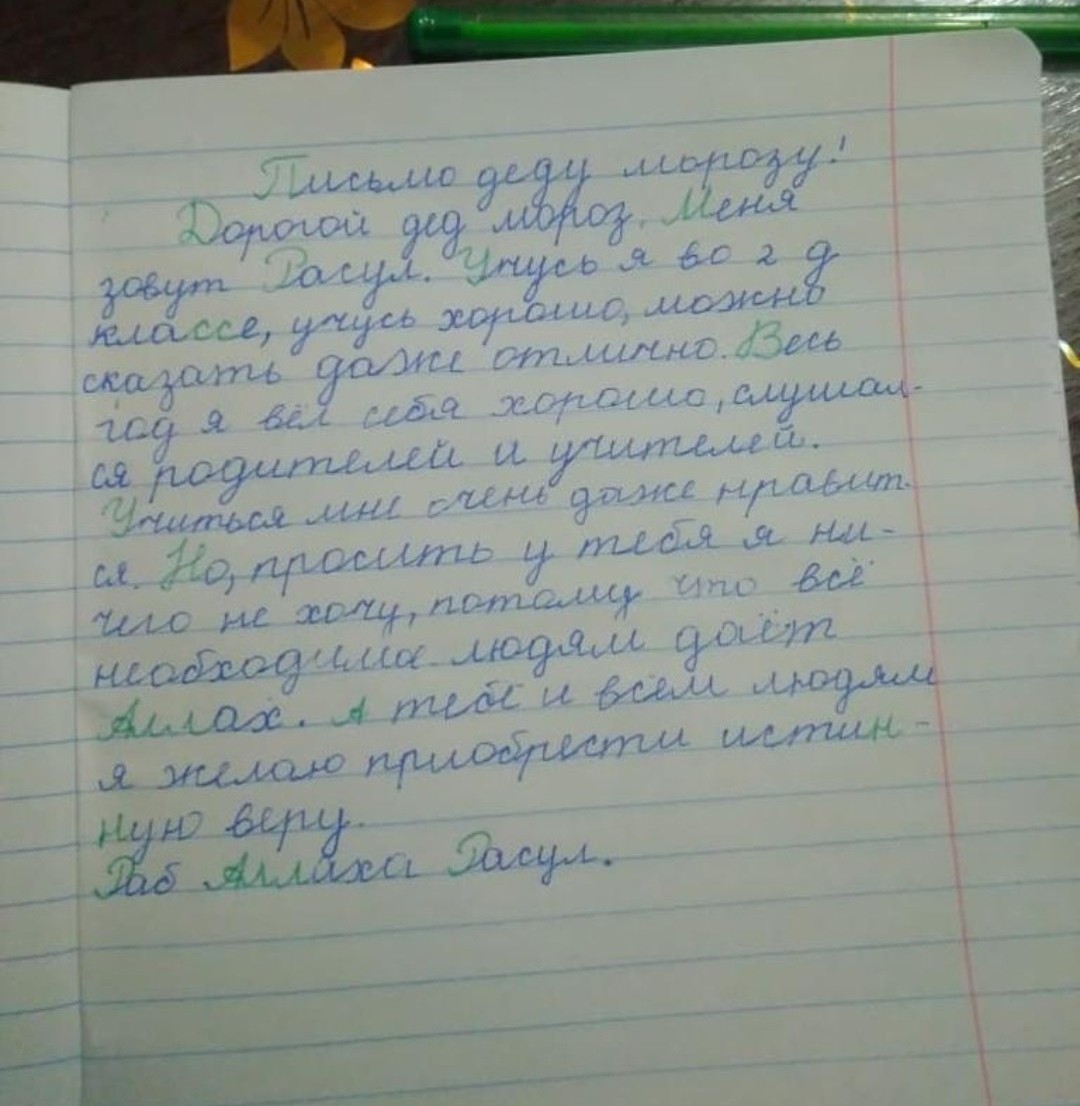 Письмо деду морозу!
Дорогой дед мороз. Меня
зовут Расул. Учусь я во 2 д
классе, учусь хорошо, можно
сказать даже отлично. Весь
год я вёл себя хорошо, слушал-
ся родителей и учителей.
Учиться мне очень даже нравит-
ся. Но, просить у тебя я ни-
чего не хочу, потому что всё
необходимое людям даёт
Аллах. А тебе и всем людям
я желаю приобрести истин-
ную веру.
Раб Аллаха Расул.